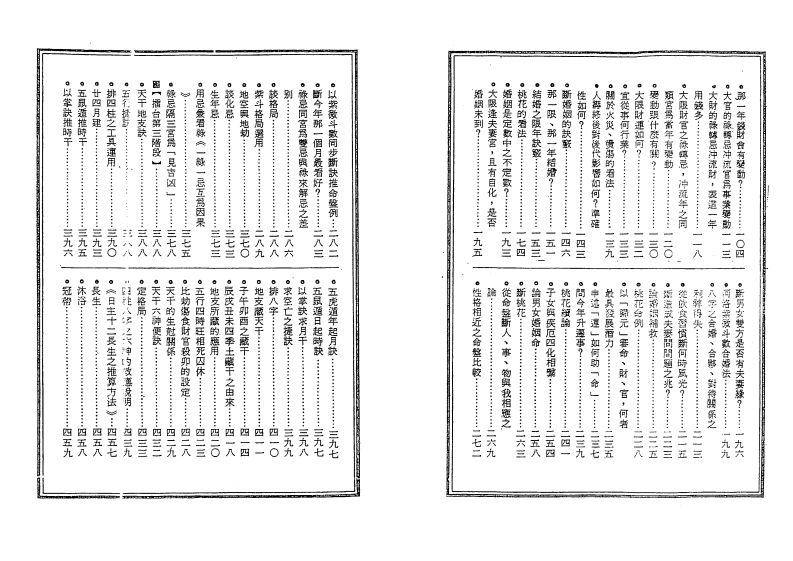 那一年錢財會有變動？一０四
大官的祿轉忌沖流官爲事業變動一一三
大財的祿轉忌沖流財，表這一年
用錢多一一八
大限財官之祿轉忌，沖流年之同
類宮爲當年有變動一二０
變動跟什麼有關？一三０
大限財運如何？一三一
宜從事何行業？一三三
關於火災、燙傷的看法一三九
人壽終後對後代影響如何？準確
性如何？一四三
斷婚姻的訣竅一四六
那一限、那一年結婚？一五一
結婚之限年訣竅一五三
桃花的看法一七四
婚姻是定數中之不定數？一九三
大限逢夫妻宮，且有自化，是否
婚姻未到？一九五
斷男女雙方是否有夫妻緣？一九六
河洛紫微斗數合婚法一九九
八字之合婚、合夥、對待關係之
利弊得失
從飲食習慣斷何時風光？二一五
婚姻補救二二五
桃花命例二二八
以「歸元」審命、財、官，何者
最具發展潛力二三五
申述「運」如何助「命」二三七
問今年升遷事？二三九
桃花續論二四一
子女與疾厄四化相繫二五四
論男女婚姻命二五八
斷桃花二六三
從命盤斷人、事、物與我相應之
論二六九
性格相近之命盤比較二七二
以紫微斗數同步斷訣推命盤例二八二
斷今年那一個月最看好？二八三
祿忌同宮爲雙忌與祿來解忌之差
別二八六
談格局二八八
紫斗格局選用二八九
地空與地劫三七０
談化忌三七二
生年忌三七三
用忌兼看祿《一祿一忌互爲因果
》三七五
祿忌隔三宮爲「見言凶」三七八
【擂台第三階段】三八八
天干地支訣三八八
五行掛訣
排四柱之工具運用三九０
廿四月建三九三
五鼠遁推時干三九五
以掌訣推時干三九六
五虎遁年起月訣三九七
五鼠遁日起時訣三九七
以掌訣求月干三九八
求空亡之捷訣三九九
排八字四一０
地支藏天干四一一
子午卯酉之藏干四一四
辰戌丑未四季土藏干之由來四一八
地支所藏的應用四二０
五行四時旺相死囚休四二三
比劫傷食財官殺卯的設定四二八
天干的生尅關係四二九
天干六神便訣四三二
定格局四三三
四三九
《日主十二長生之推算方法》四五七
長生四五八
沐浴四五八
冠帶四五九